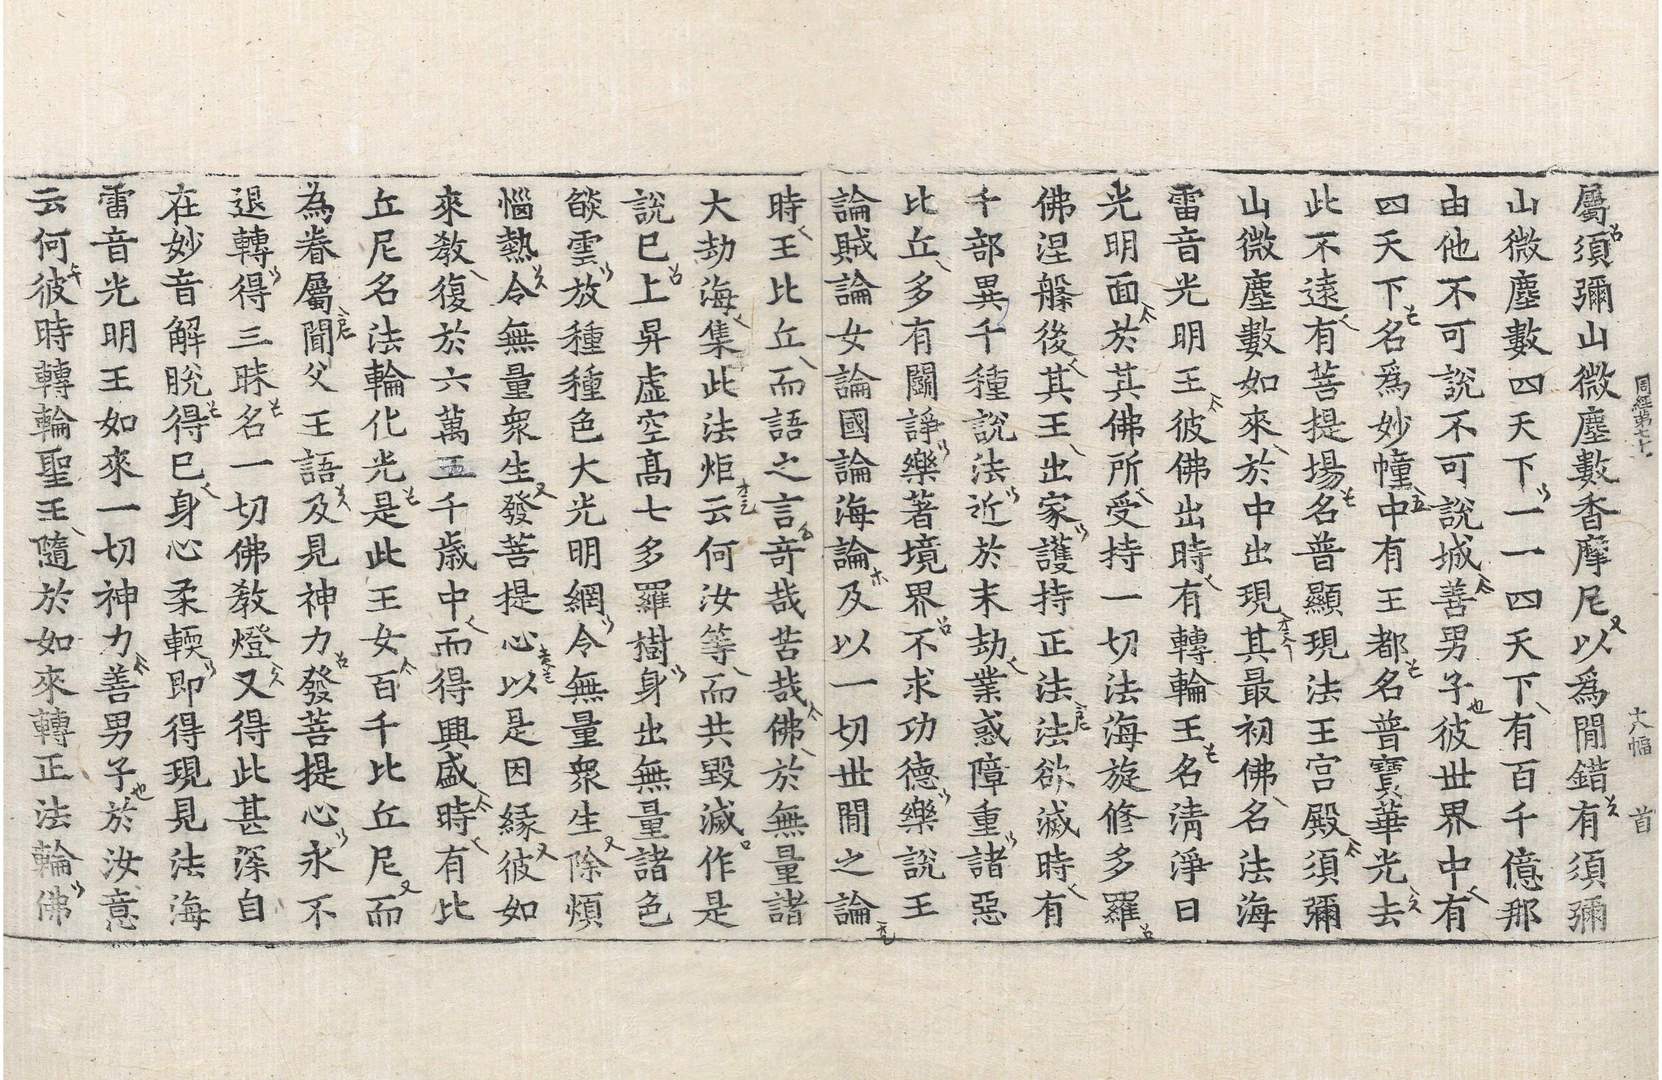 周經第七十
大幅
首
屬須彌山微塵數香摩尼以爲閒錯有須彌
山微塵數四天下一一四天下有百千億那
由他不可說不可說城善男子彼世界中有
四天下名爲妙幢中有王都名普寶華光去
此不遠有菩提場名普顯現法王宮殿須彌
山微塵數如來於中出現其最初佛名法海
雷音光明王彼佛出時有轉輪王名清淨日
光明面於其佛所受持一切法海旋修多羅
佛涅槃後其王出家護持正法法欲滅時有
千部異千種說法近於末劫業惑障重諸惡
比丘多有鬪諍樂著境界不求功德樂說王
論賊論女論國論海論及以一切世閒之論
時王比丘而語之言奇哉苦哉佛於無量諸
大劫海集此法炬云何汝等而共毀滅作是
說已上昇虛空高七多羅樹身出無量諸色
燄雲放種種色大光明網令無量衆生除煩
惱熱令無量衆生發菩提心以是因緣彼如
來教復於六萬五千歲中而得興盛時有比
丘尼名法輪化光是此王女百千比丘尼而
為眷屬聞父王語及見神力發菩提心永不
退轉得三昧名一切佛教燈又得此甚深自
在妙音解脫得已身心柔輭即得現見法海
雷音光明王如來一切神力善男子於汝意
云何彼時轉輪聖王隨於如來轉正法輪佛